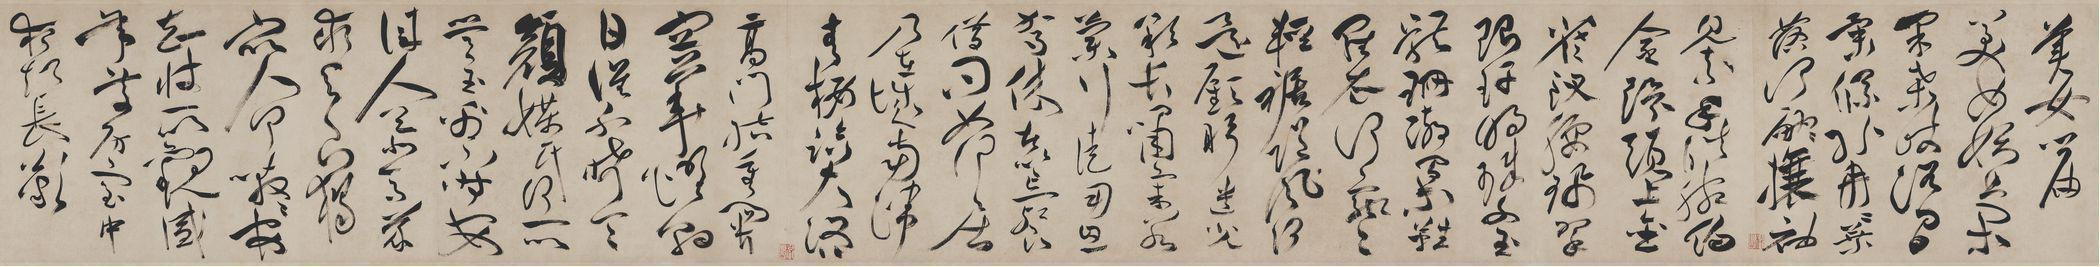 美女篇
美女妖且閑
采桑歧路間
柔條紛冉冉葉
落何翩翩攘袖
見素手皓腕約
金環頭上金
爵釵腰佩翠
琅玕明珠交玉
體珊瑚間木難
羅衣何飄飄
輕裾隨風
還顧盼遺光
彩長嘯氣若
蘭行徒用息
駕休者以忘餐
借問女何居
乃在城南端
青樓臨大路
高門結重關
容華耀朝
日誰不希令
顏媒氏何所
營玉帛不時安
佳人慕高義
求賢良獨難
衆人何嗷嗷安
知彼所觀盛
年處房室中
夜起長歎